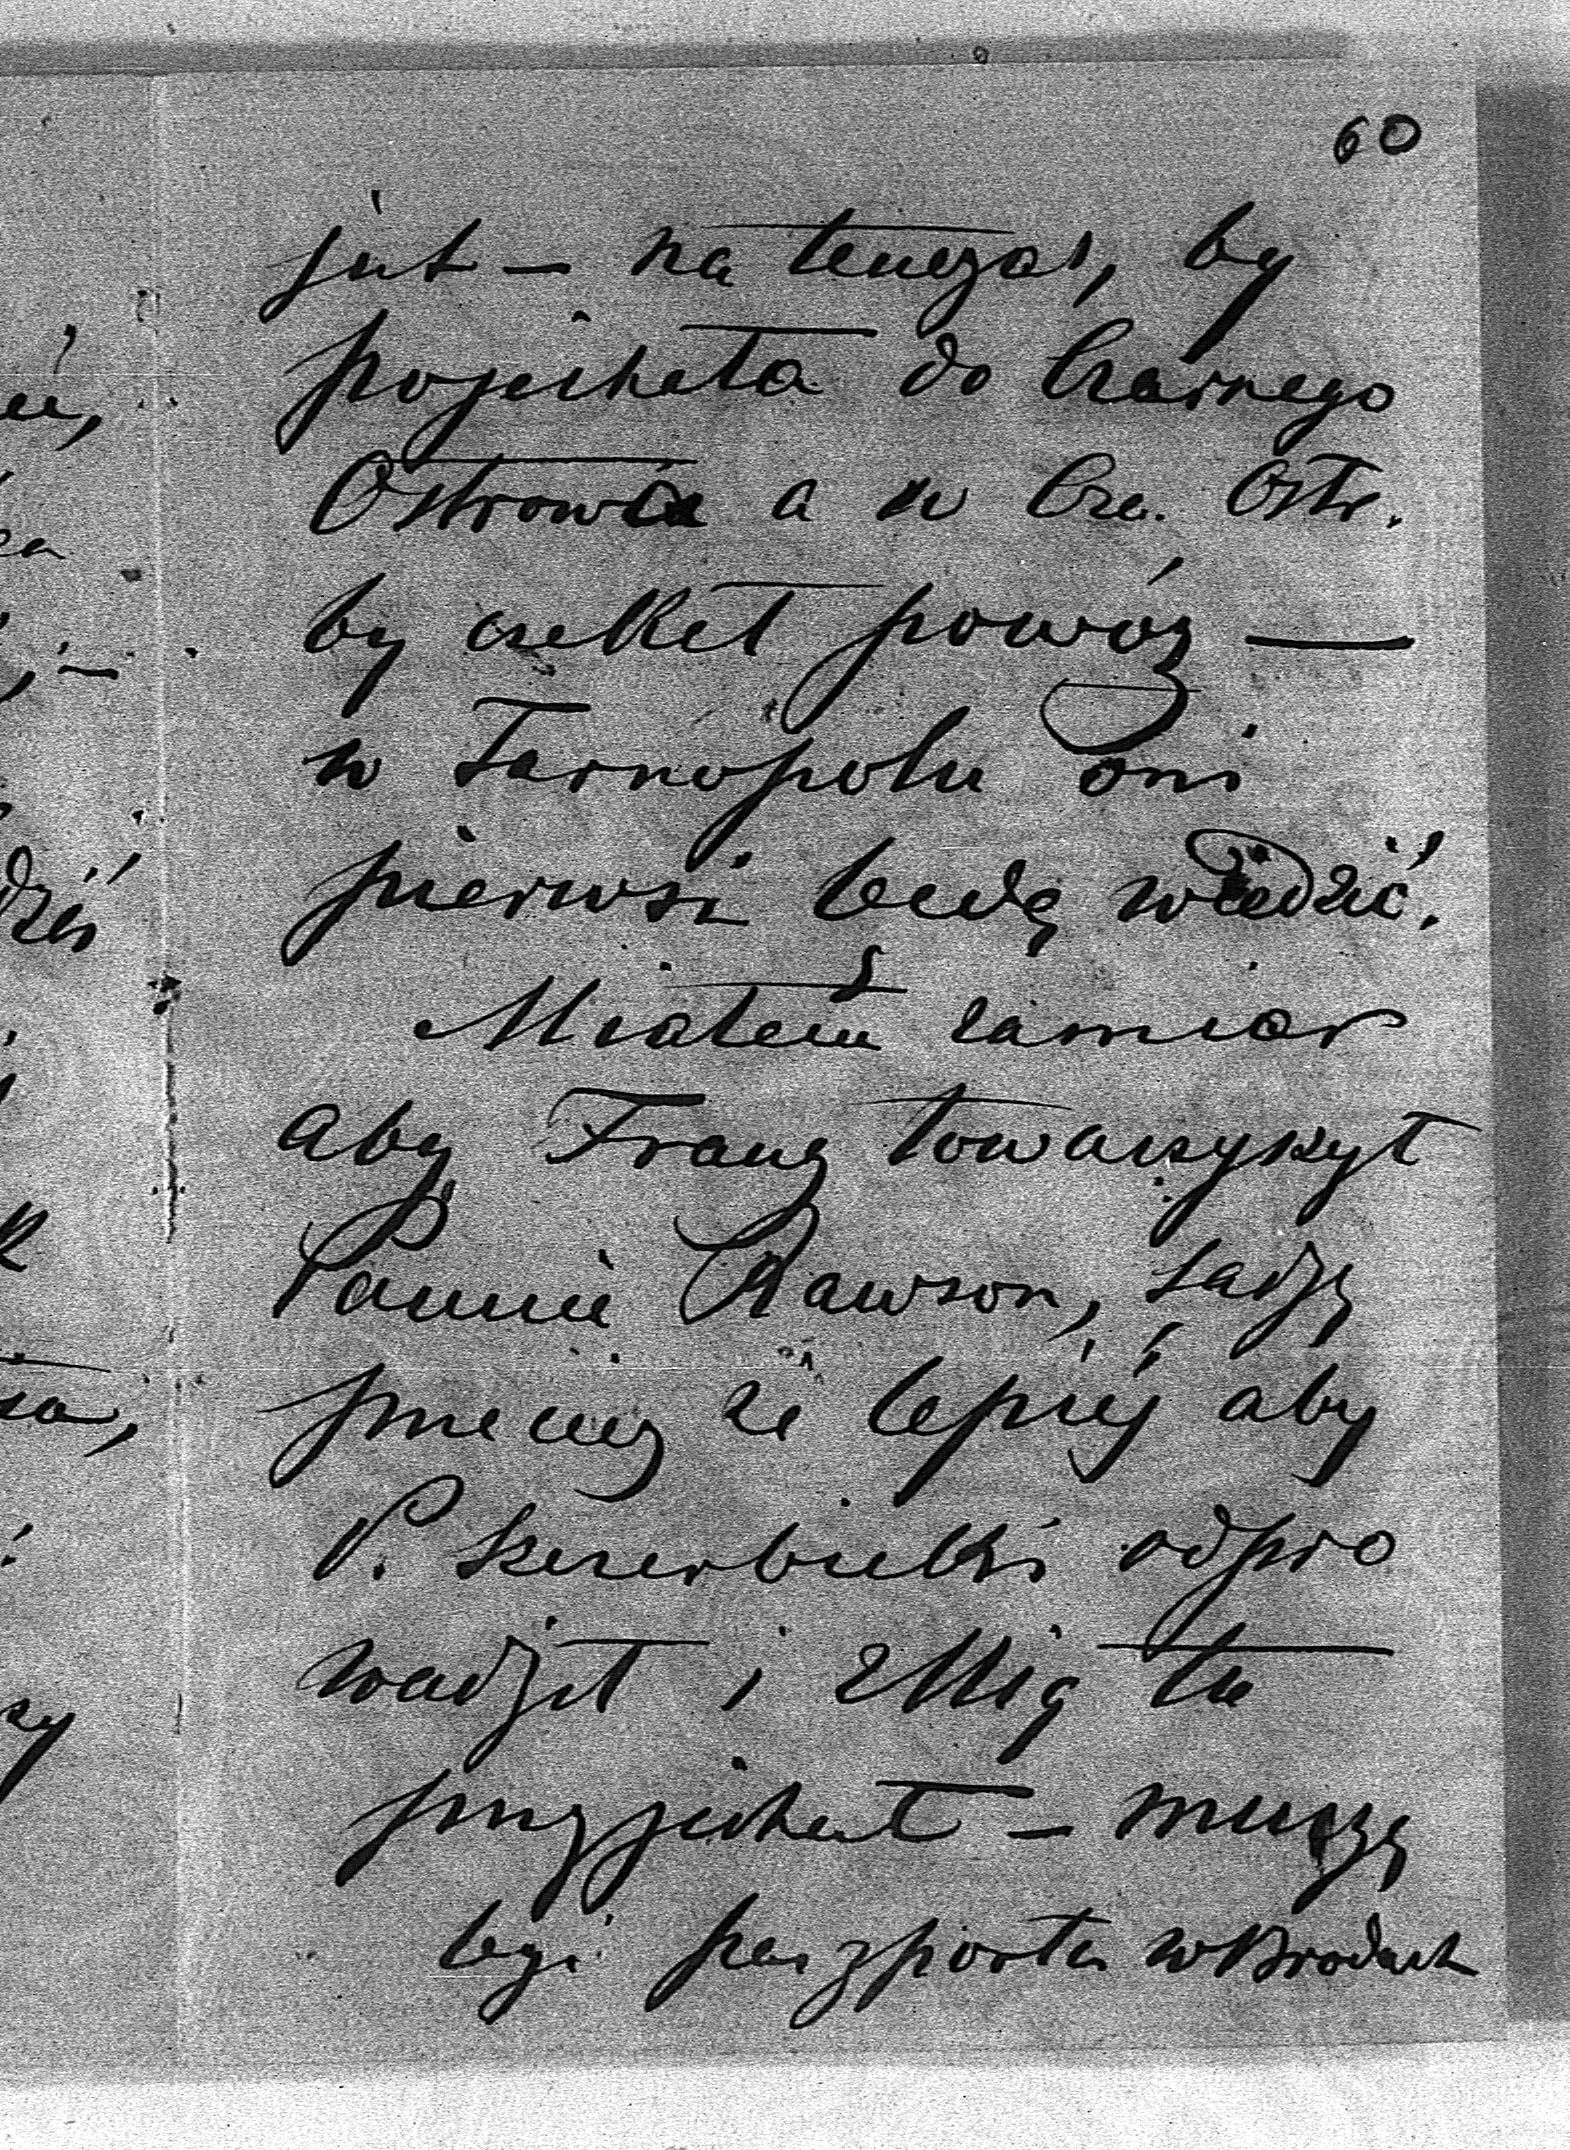 60
już – na tenczas, by
pojechała do Czarnego
Ostrowia a w Cza. Ostr.
by czekał powóz —
w Tarnopolu oni
pierwsi będą wiedzić.
Miałem zamiar
aby Franz towarzyszył
Pannie Rawson, sadzę
przeciez że lepiéj aby
P. Szczerbicki odpro
wadził i z Mią tu
przyjechał – muszą
byś paszporta w Brodach